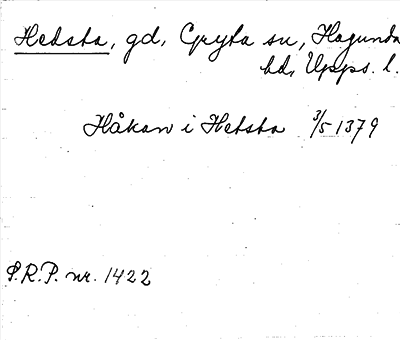 Hetsta, gd, Gryta sn, Hagunda
hd, Upps. l.
Håkan i Hetsta 3/5 1379
S.R.P. nr. 1422